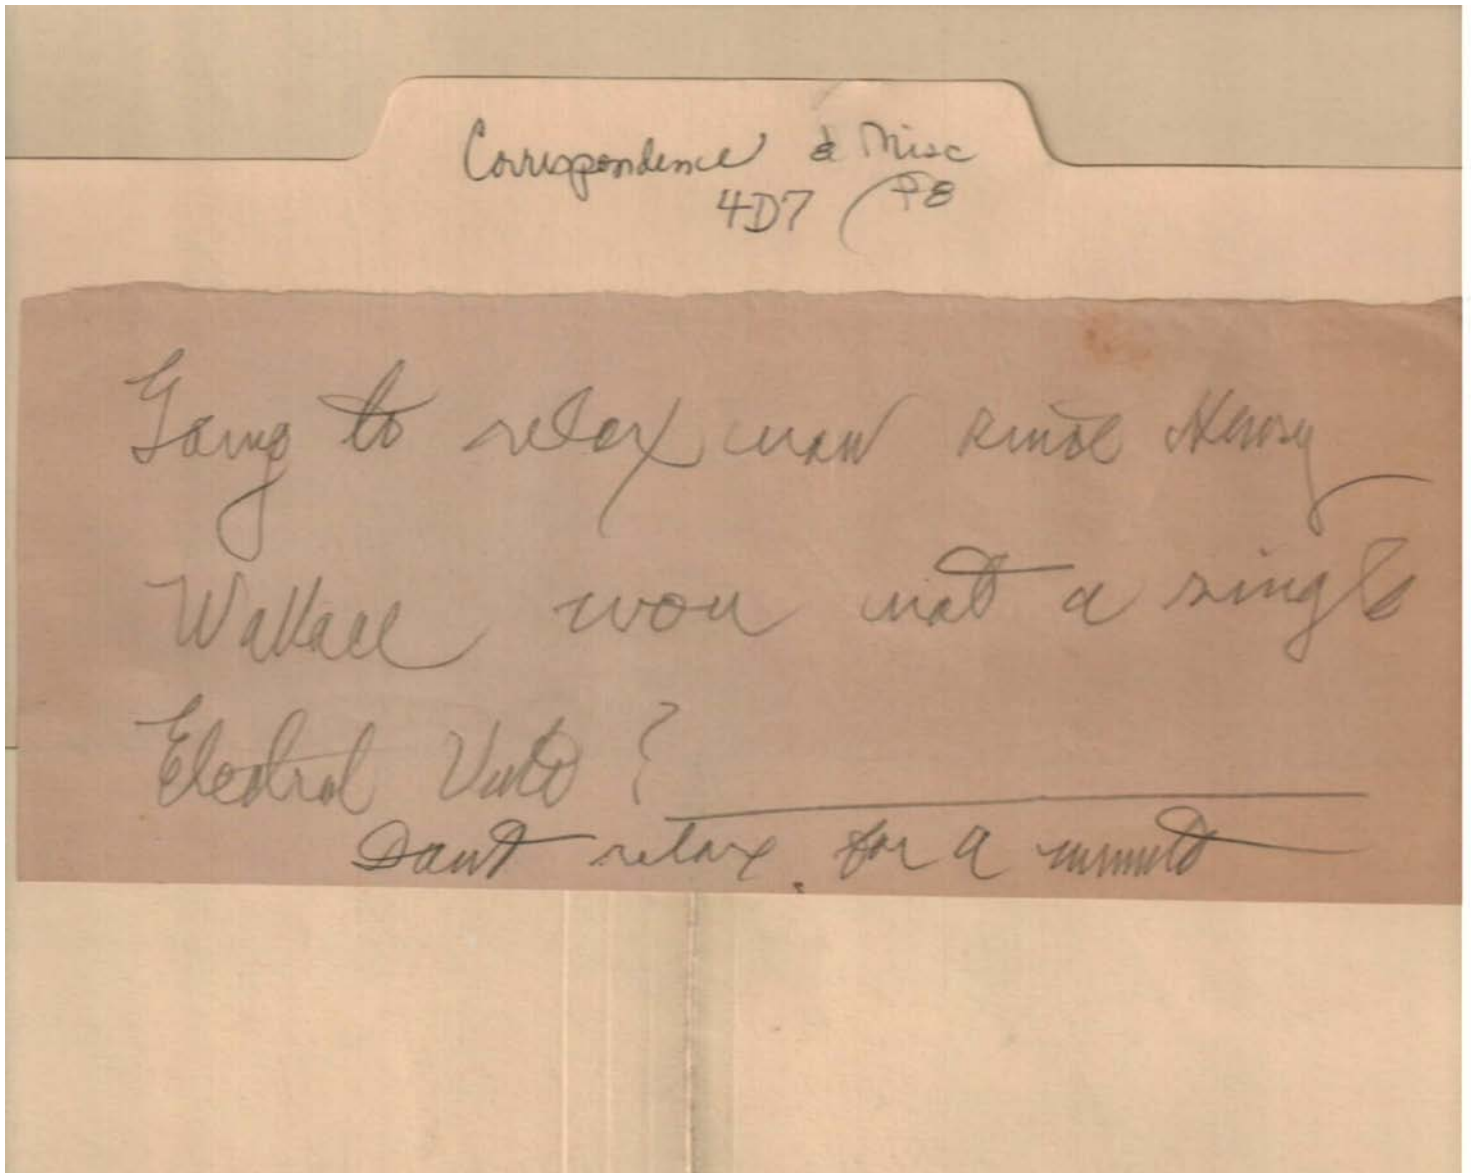 Correspondence & Misc
4D7 (P8
Going to relax now since Henry
Wallace won not a single
Electral Vote?
Dont relax for a minute